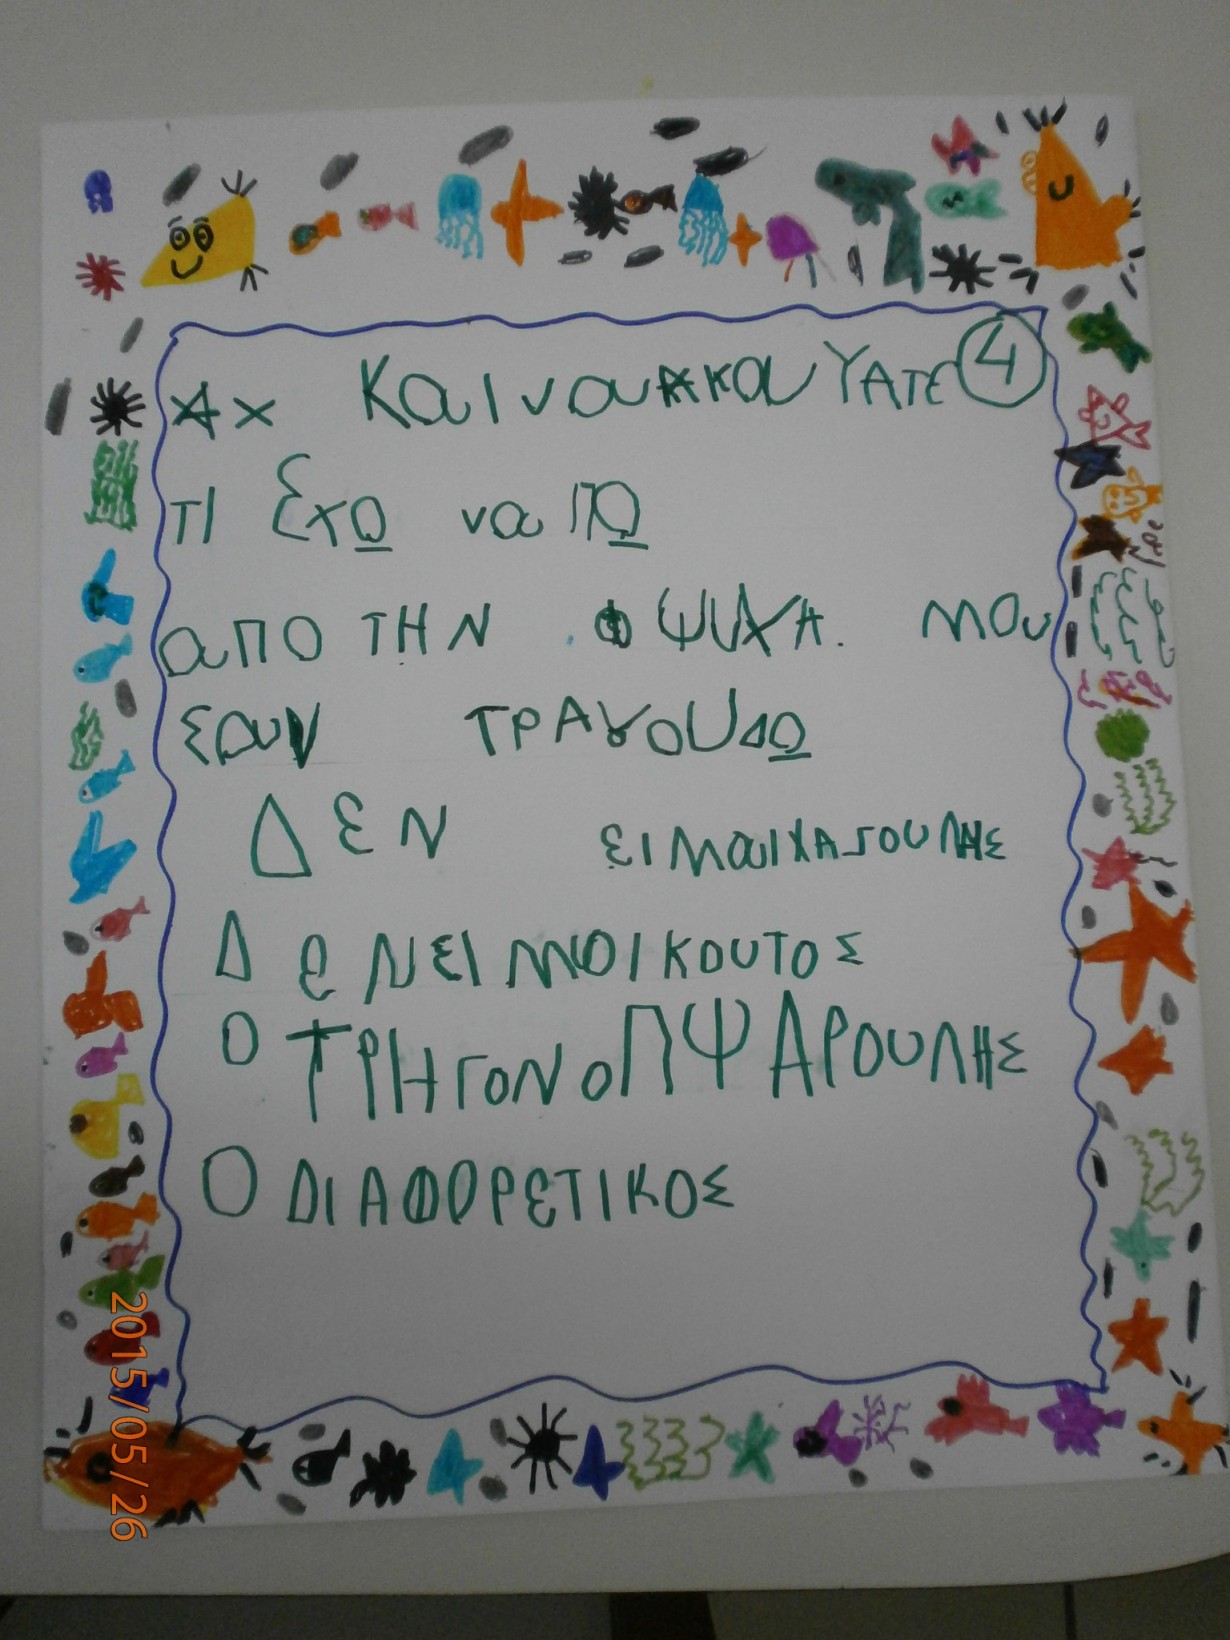 Αχ Και να ακαΥΑΤΕ 4
ΤΙ ΕΧΩ να ΠΩ
αΠΟ ΤΗΝ ΨΥΧΑ. ΜΟυ
ΣαυΝ ΤΡΑγΟυΔΩ
ΔΕΝ ΕΙΜαΙ ΧΑΖΟΥΛΗΣ
ΔΕΝ ΕΙΜαΙ ΚΟΥΤΟΣ
Ο ΤΡΗΓΟΝΟΠΨΑΡΟΥΛΗΣ
Ο ΔΙΑΦΟΡΕΤΙΚΟΣ
2015/05/26